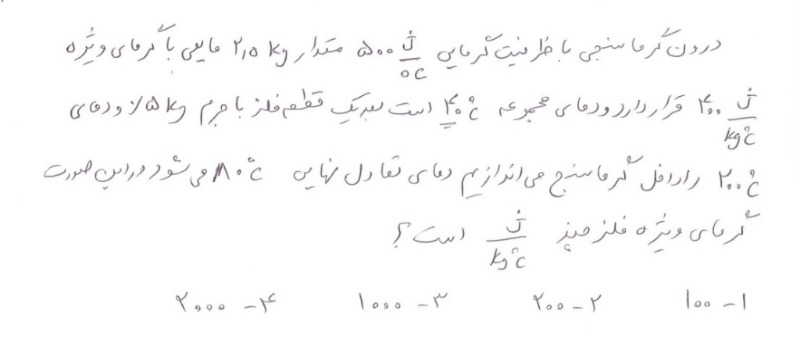 درون گرماسنجی با ظرفیت گرمایی ۵۰۰ ژ/°C مقدار ۲٫۵ kg مایعی با گرمای ویژه
۴۰۰ ژ/kg°C قرار دارد و دمای مجموعه ۴۰°C است بعد یک قطعه فلز با جرم ۰/۵ kg و دمای
۲۰۰°C را داخل گرماسنج می‌اندازیم دمای تعادل نهایی ۸۰°C می‌شود در این صورت
گرمای ویژه فلز چند ژ/kg°C است؟
۱- ۱۰۰ ۲- ۲۰۰ ۳- ۱۰۰۰ ۴- ۲۰۰۰